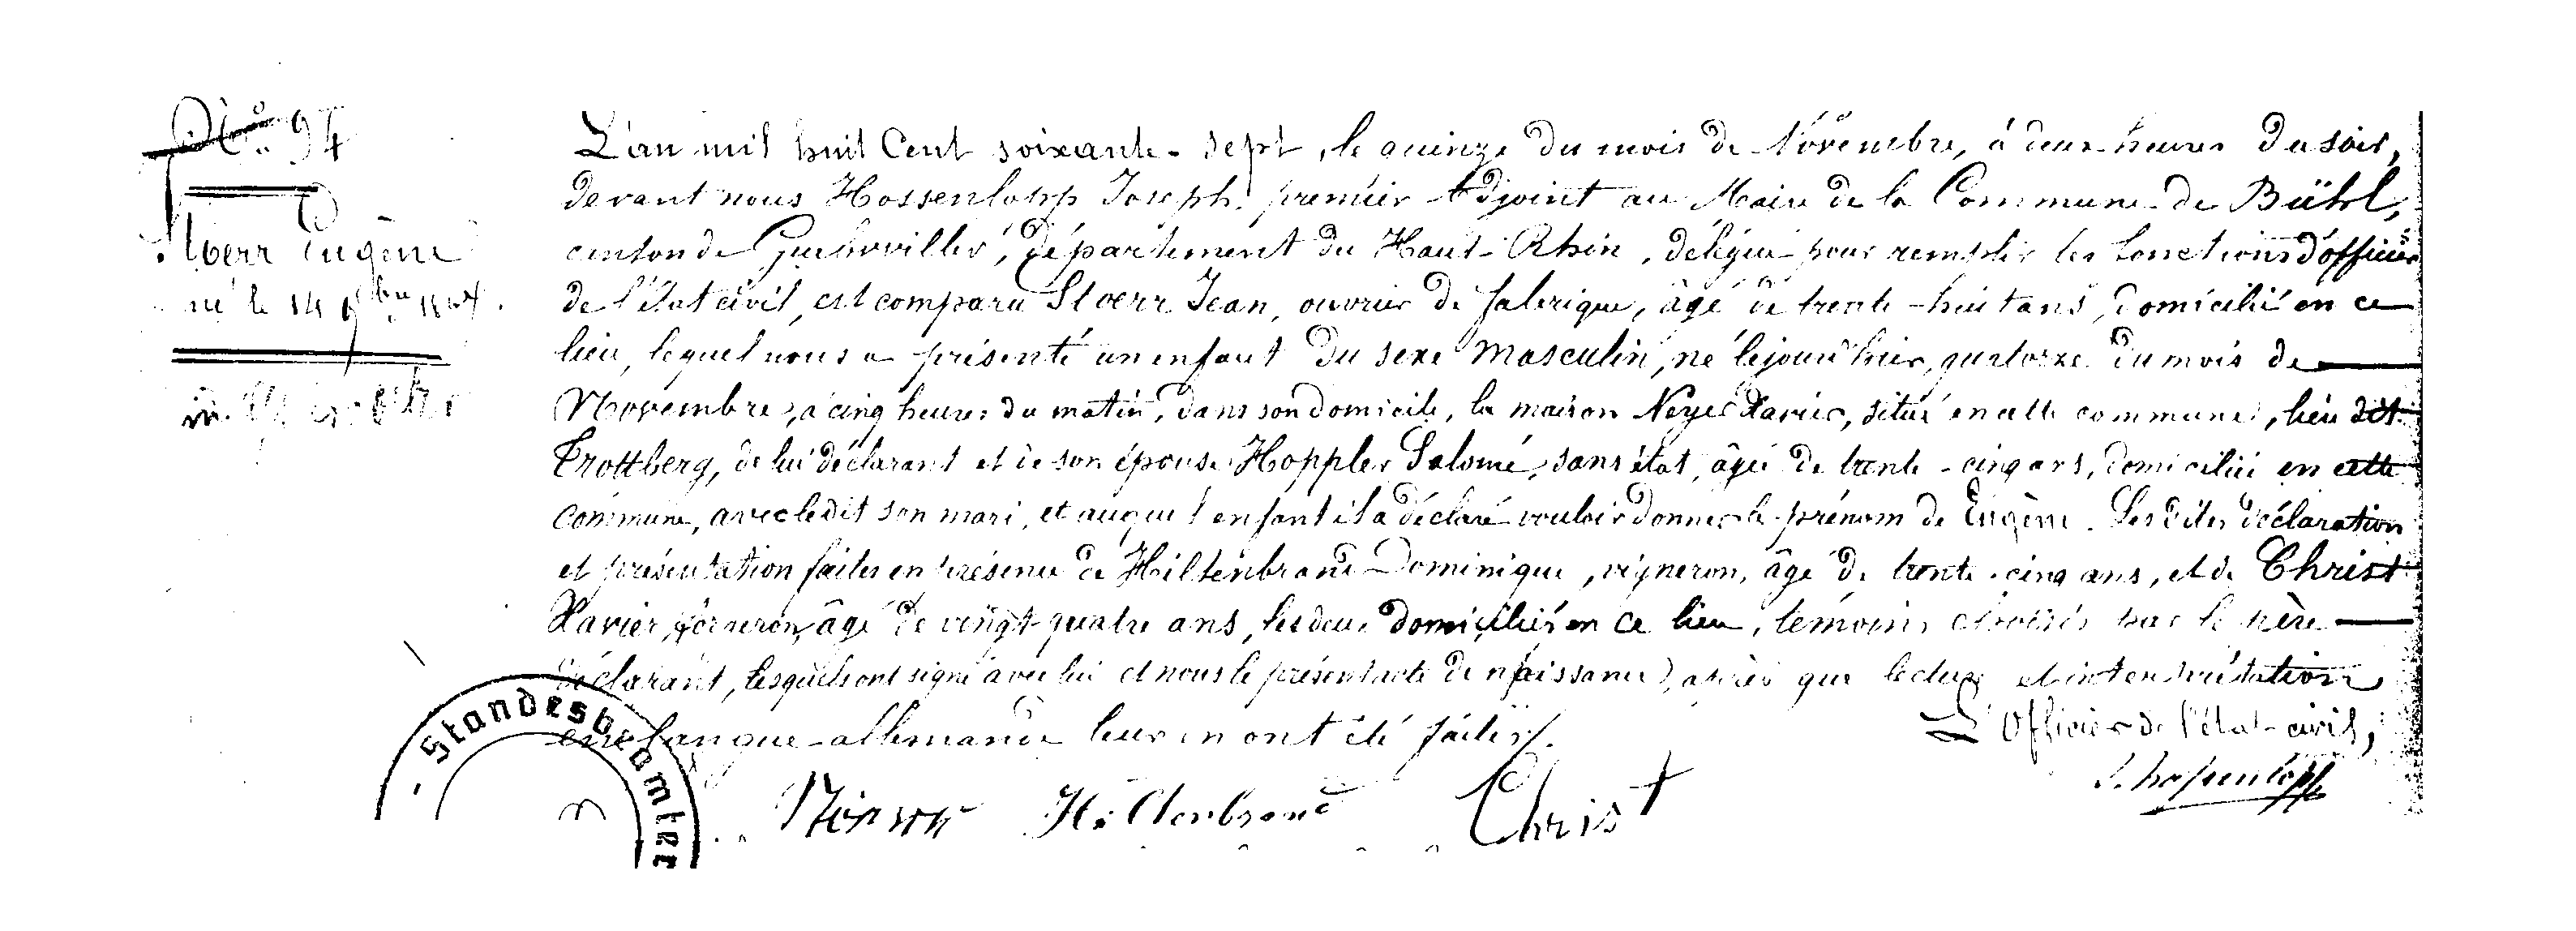 N.º 94
Stoerr Eugène
né le 14 9bre 1867.
L'an mil huit Cent soixante-sept, le quinze du mois de Novembre, à deux heures du soir,
devant nous Hossenlopp Joseph, premier Adjoint au Maire de la Commune de Bühl,
canton de Guebwiller, département du Haut-Rhin, délégué pour remplir les fonctions d'officier
de l'état civil, est comparu Stoerr Jean, ouvrier de fabrique, âgé de trente-huit ans, domicilié en ce
lieu, lequel nous a présenté un enfant du sexe masculin, né le jour d'hier, quatorze du mois de
Novembre, à cinq heures du matin, dans son domicile, la maison Xavier, située en cette commune, lieu dit
Trottberg, de lui déclarant et de son épouse Hoppler Salomé, sans état, âgée de trente-cinq ans, domiciliée en cette
commune, avec ledit son mari, et auquel enfant il a déclaré vouloir donner le prénom de Eugène. Les dites déclaration
et présentation faites en présence de Hiltenbrand Dominique, vigneron, âgé de trente-cinq ans, et de Christ
Xavier, vigneron, âgé de vingt-quatre ans, les deux domiciliés en ce lieu, témoins choisis par le père
déclarant, lesquels ont signé avec lui et nous le présent acte de naissance, après que lecture et interprétation
en langue allemande leur en ont été faites.
L'Officier de l'état-civil,
J. hossenlopp
Hiltenbrand Christ
Standesbeamter